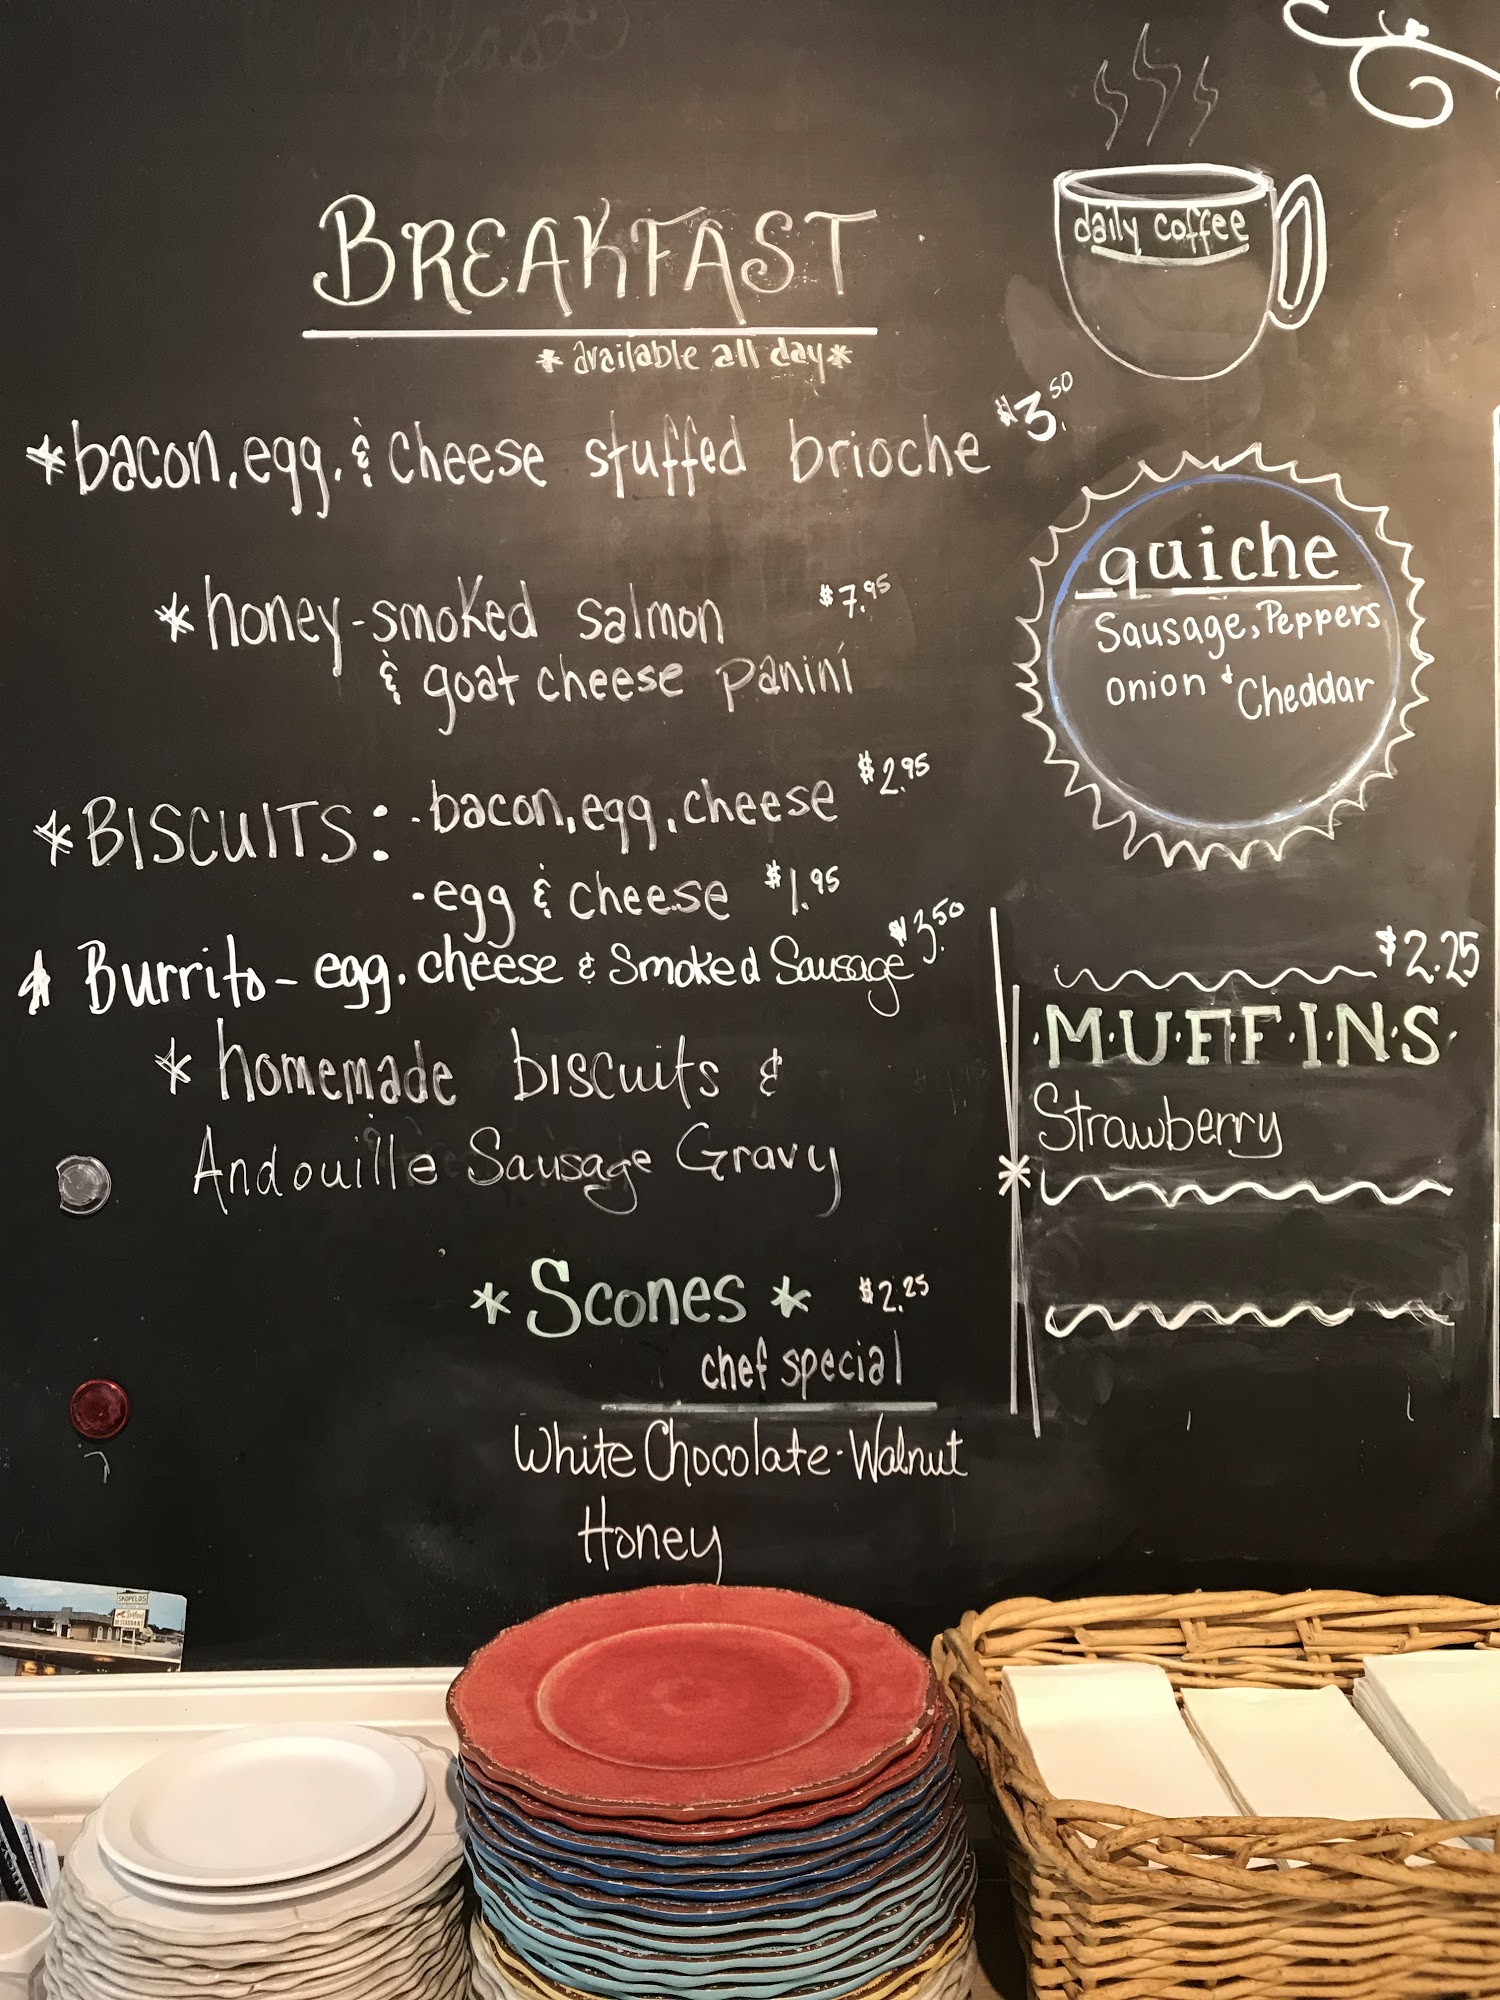 BREAKFAST
*available all day*
*bacon, egg, & cheese stuffed brioche $3.50
*honey-smoked salmon $7.95
& goat cheese panini
*BISCUITS: -bacon, egg, cheese $2.95
-egg & cheese $1.95
*Burrito - egg, cheese & Smoked Sausage $3.50
*homemade biscuits &
Andouille Sausage Gravy
*Scones* $2.25
chef special
White Chocolate-Walnut
Honey
daily coffee
quiche
Sausage, Peppers
onion & Cheddar
$2.25
·M·U·F·F·I·N·S·
Strawberry
*
SKOPELOS
RESTAURANT